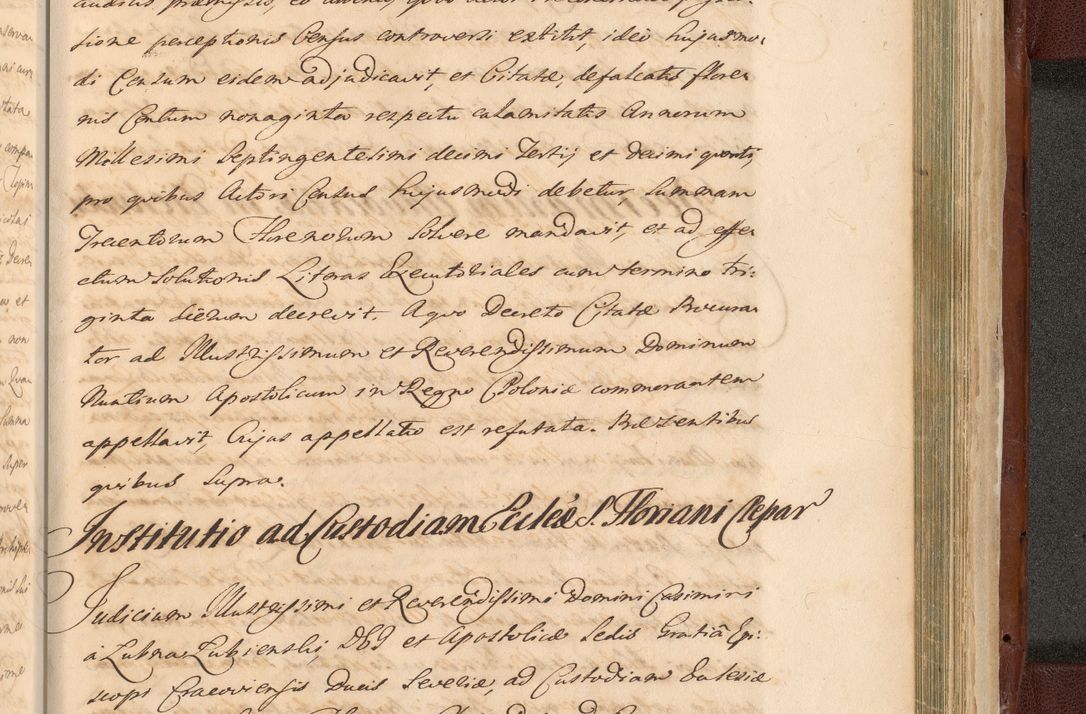 sione perceptionis Census controversi extitit, ideo hujusmo,
di Censum eidem adjudicavit, et Citatæ, defalcatis flore,
nis Centum nonaginta respectu calamitatis Annorum
Millesimi Septingentesimi decimi Tertij et decimi quarti,
pro quibus Actori Census hujusmodi debetur, Summam
Trecentorum Florenorum Solvere mandavit, et ad effe
ctum Solutionis Literas Executoriales cum termino tri:
ginta dierum decrevit. A quo Decreto Citatæ Procura
tor ad Illustrissimum et Reverendissimum Dominum
Nuntium Apostolicum in Regno Poloniæ commorantem
appellavit, Cujus appellatio est refutata. Præsentibus
quibus Supra.
Institutio ad Custodiam Eccleæ S. Floriani Clepar
Judicium Illustrissimi et Reverendissimi Domini Casimiri
à Lubna Lubienski, DEG et Apostolicæ Sedis Gratiâ Epi:
scopi Cracoviensis Ducis Severiæ, ad Custodiam Eclesiæ